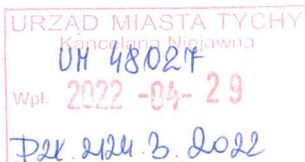 URZĄD MIASTA TYCHY
Kancelaria Niejawna
UM 48027
Wpł. 2022 -04- 29
PZK. 2124.3.2022